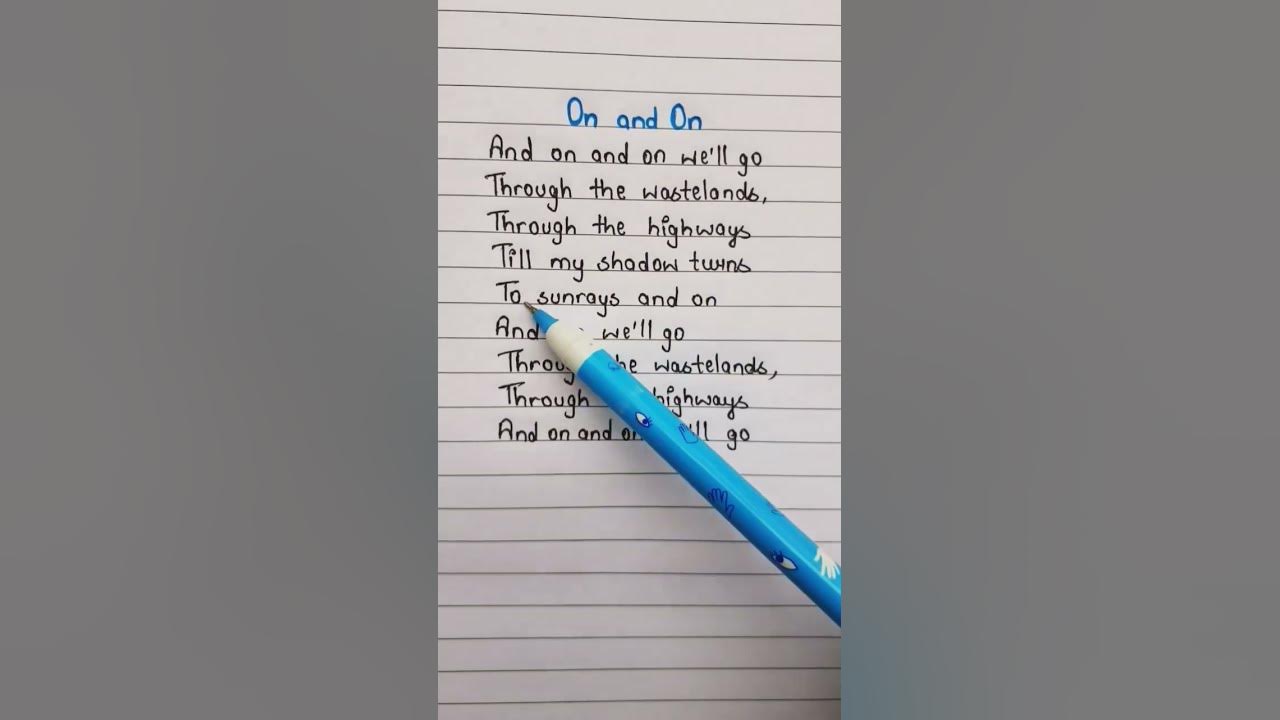 On and On
And on and on we'll go
Through the wastelands,
Through the highways
Till my shadow turns
To sunrays and on
And we'll go
Through the wastelands,
Through highways
And on and on go